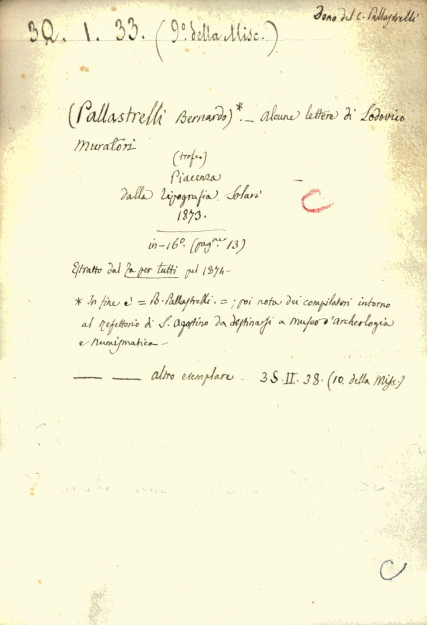 Dono del C. Pallastrelli
3Q. 1. 33. (9º della Misc.)
(Pallastrelli Bernardo)* – Alcune lettere di Lodovico
Muratori
(trofeo)
Piacenza
dalla tipografia Solari
1873.
in-16º. (pagne 13)
Estratto dal Za per tutti pel 1874 –
* In fine è = B. Pallastrelli. = ; poi nota dei compilatori intorno
al refettorio di S. Agostino da destinarsi a museo d'Archeologia
e numismatica –
— — altro esemplare – 3S. II. 38. (10. della Misc.)
C
C